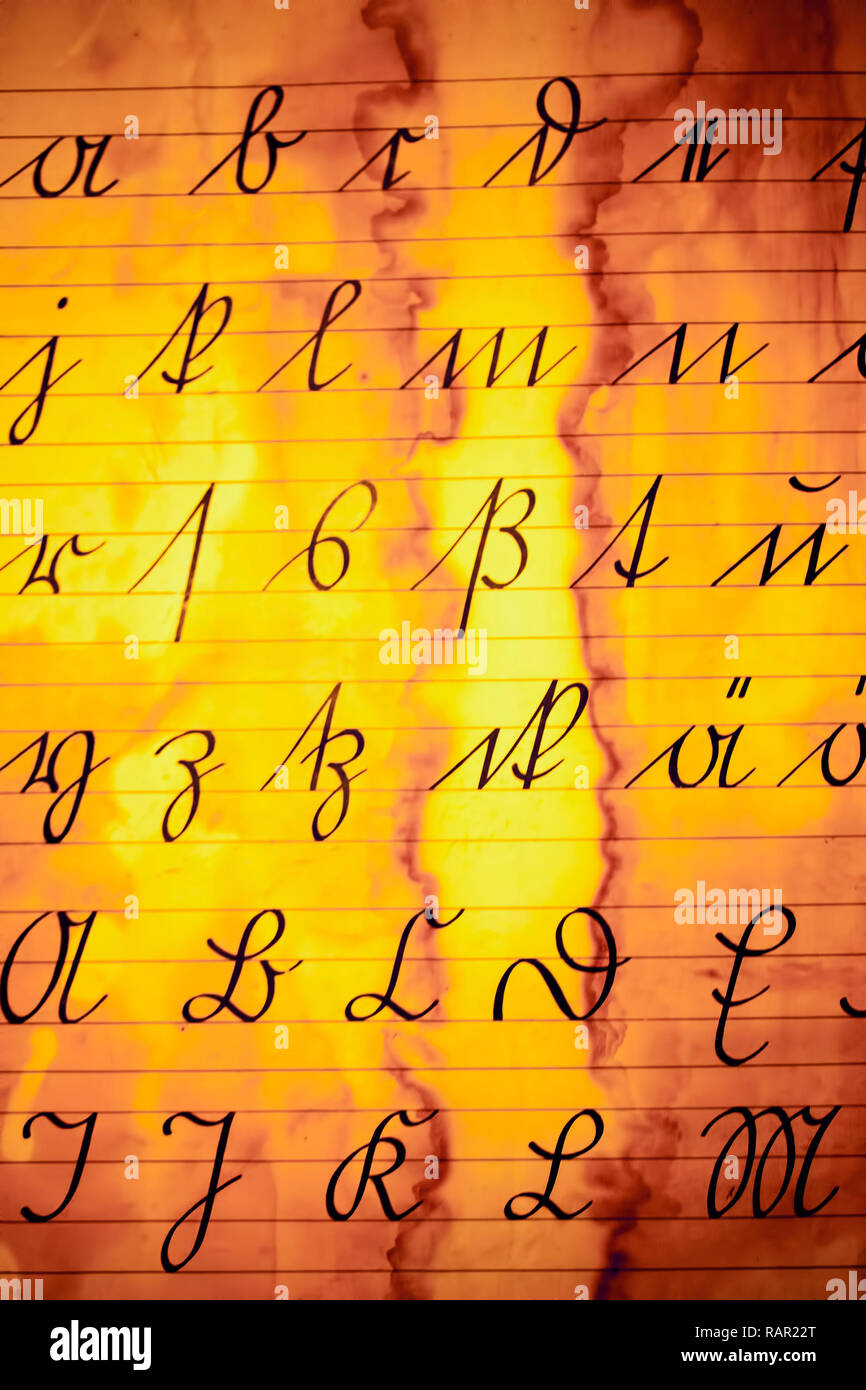 a b c d e f
j k l m n
r ſ s ß t u
y z tz ck ä ö
A B C D E
I J K L M
alamy
Image ID: RAR22T
www.alamy.com